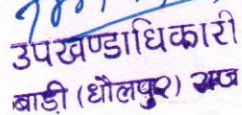 उपखण्डाधिकारी
बाड़ी (धौलपुर) राज